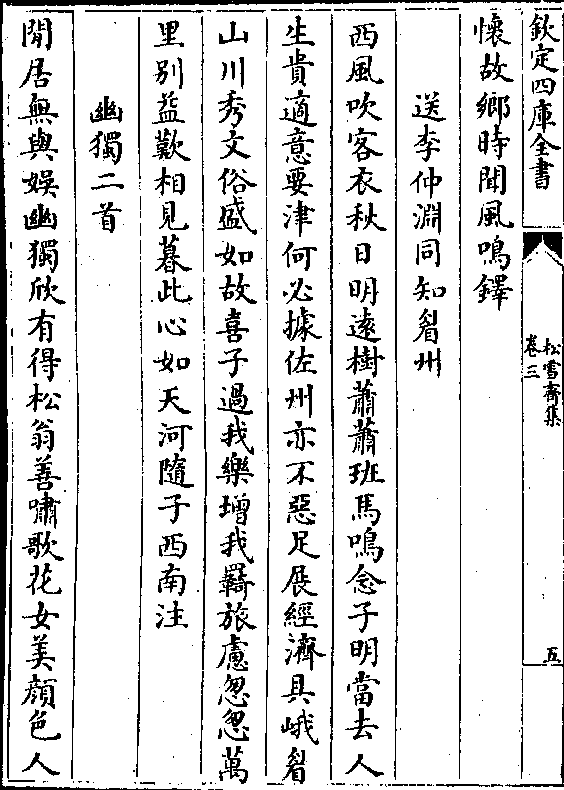 欽定四庫全書
松雪齋集
卷三
五
懷故鄉時聞風鳴鐸
送李仲淵同知眉州
西風吹客衣秋日明遠樹蕭蕭班馬鳴念子明當去人
生貴適意要津何必據佐州亦不惡足展經濟具峨眉
山川秀文俗盛如故喜子過我樂增我羇旅慮忽忽萬
里别益歎相見暮此心如天河隨子西南注
幽獨二首
閒居無與娱幽獨欣有得松翁善嘯歌花女美顔色人